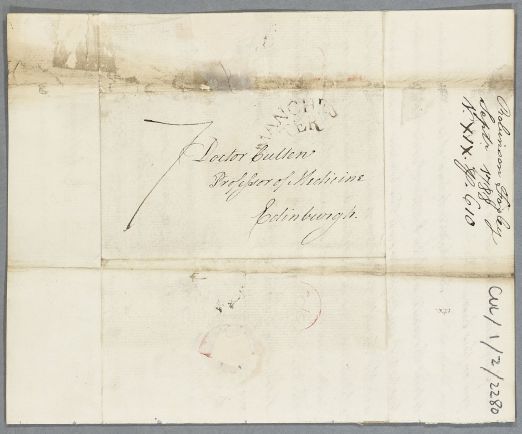 MANCHES
TER
7
Doctor Cullen
Professor of Medicine
Edinburgh.
Robinson Foxley
Septr 1788
V. XIX. p. 610
CUL/1/2/2280